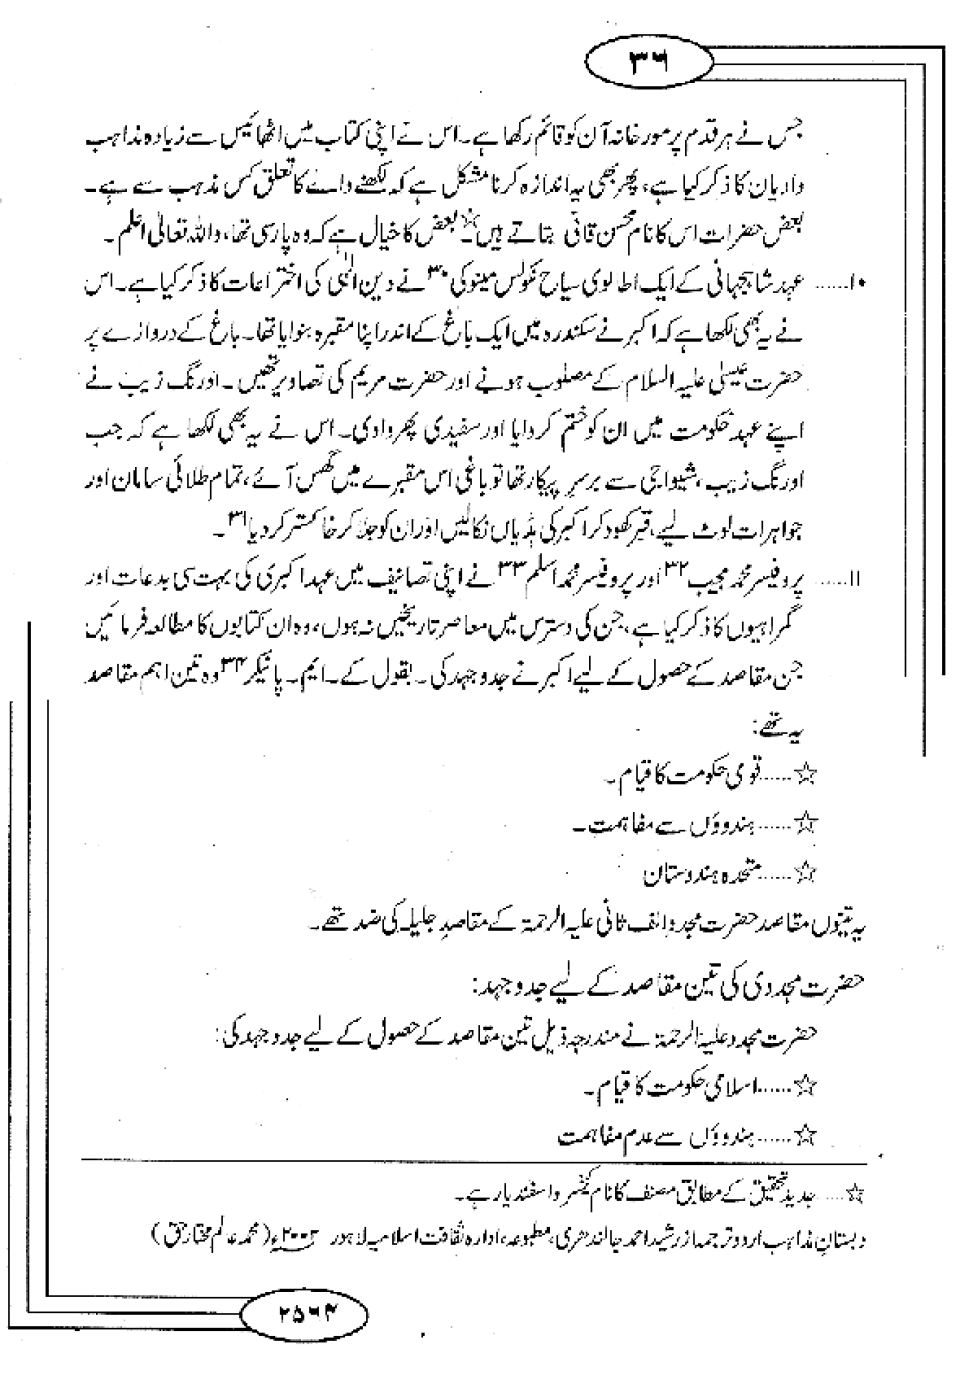 ۳۶
جس نے ہر قدم پر مورخانہ آن کو قائم رکھا ہے۔ اس نے اپنی کتاب میں اٹھائیس سے زیادہ مذاہب
وادیان کا ذکر کیا ہے، پھر بھی یہ اندازہ کرنا مشکل ہے کہ لکھنے والے کا تعلق کس مذہب سے ہے۔
بعض حضرات اس کا نام محسن فانی بتاتے ہیں۔☆ بعض کا خیال ہے کہ وہ پارسی تھا، واللہ تعالیٰ اعلم۔
۱۰...... عہد شاہجہانی کے ایک اطالوی سیاح نکولس مینوکی۳۰ نے دین الٰہی کی اختراعات کا ذکر کیا ہے۔ اس
نے یہ بھی لکھا ہے کہ اکبر نے سکندرہ میں ایک باغ کے اندر اپنا مقبرہ بنوایا تھا۔ باغ کے دروازے پر
حضرت عیسیٰ علیہ السلام کے مصلوب ہونے اور حضرت مریم کی تصاویر تھیں۔ اورنگ زیب نے
اپنے عہد حکومت میں ان کو ختم کر دایا اور سفیدی پھر وادی۔ اس نے یہ بھی لکھا ہے کہ جب
اورنگ زیب، شیواجی سے برسرِ پیکار تھا تو باغی اس مقبرے میں گھس آئے، تمام طلائی سامان اور
جواہرات لوٹ لیے، قبر کھود کر اکبر کی ہڈیاں نکالیں اور ان کو جلا کر خاکستر کر دیا۳۱۔
۱۱...... پروفیسر محمد مجیب۳۲ اور پروفیسر محمد اسلم۳۳ نے اپنی تصانیف میں عہد اکبری کی بہت سی بدعات اور
گمراہیوں کا ذکر کیا ہے، جن کی دسترس میں معاصر تاریخیں نہ ہوں، وہ ان کتابوں کا مطالعہ فرمائیں
جن مقاصد کے حصول کے لیے اکبر نے جدوجہد کی۔ بقول کے۔ ایم۔ پانیکر۳۴ وہ تین اہم مقاصد
یہ تھے:
☆...... قومی حکومت کا قیام۔
☆...... ہندوؤں سے مفاہمت۔
☆...... متحدہ ہندوستان
یہ تینوں مقاصد حضرت مجدد الف ثانی علیہ الرحمۃ کے مقاصدِ جلیلہ کی ضد تھے۔
حضرت مجددی کی تین مقاصد کے لیے جدوجہد:
حضرت مجدد علیہ الرحمۃ نے مندرجہ ذیل تین مقاصد کے حصول کے لیے جدوجہد کی:
☆...... اسلامی حکومت کا قیام۔
☆...... ہندوؤں سے عدم مفاہمت
☆.... جدید تحقیق کے مطابق مصنف کا نام کیخسرو اسفندیار ہے۔
دبستانِ مذاہب اردو ترجمہ از رشید احمد جالندھری، مطبوعہ، ادارہ ثقافت اسلامیہ لاہور ۲۰۰۲ء (محمد عالم مختار حق)
۲۵۶۴